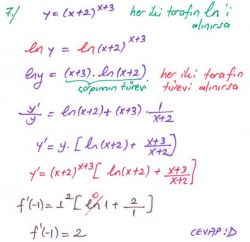 7.) y = (x+2)^{x+3} her iki tarafın ln'i alınırsa
ln y = ln(x+2)^{x+3}
lny = (x+3).ln(x+2) her iki tarafın türevi alınırsa
çarpımın türevi
y'/y = ln(x+2) + (x+3)·1/(x+2)
y' = y·[ln(x+2) + (x+3)/(x+2)]
y' = (x+2)^{x+3} [ln(x+2) + (x+3)/(x+2)]
f'(-1) = 1^2 [ln1 + 2/1] 0
f'(-1) = 2 CEVAP:D